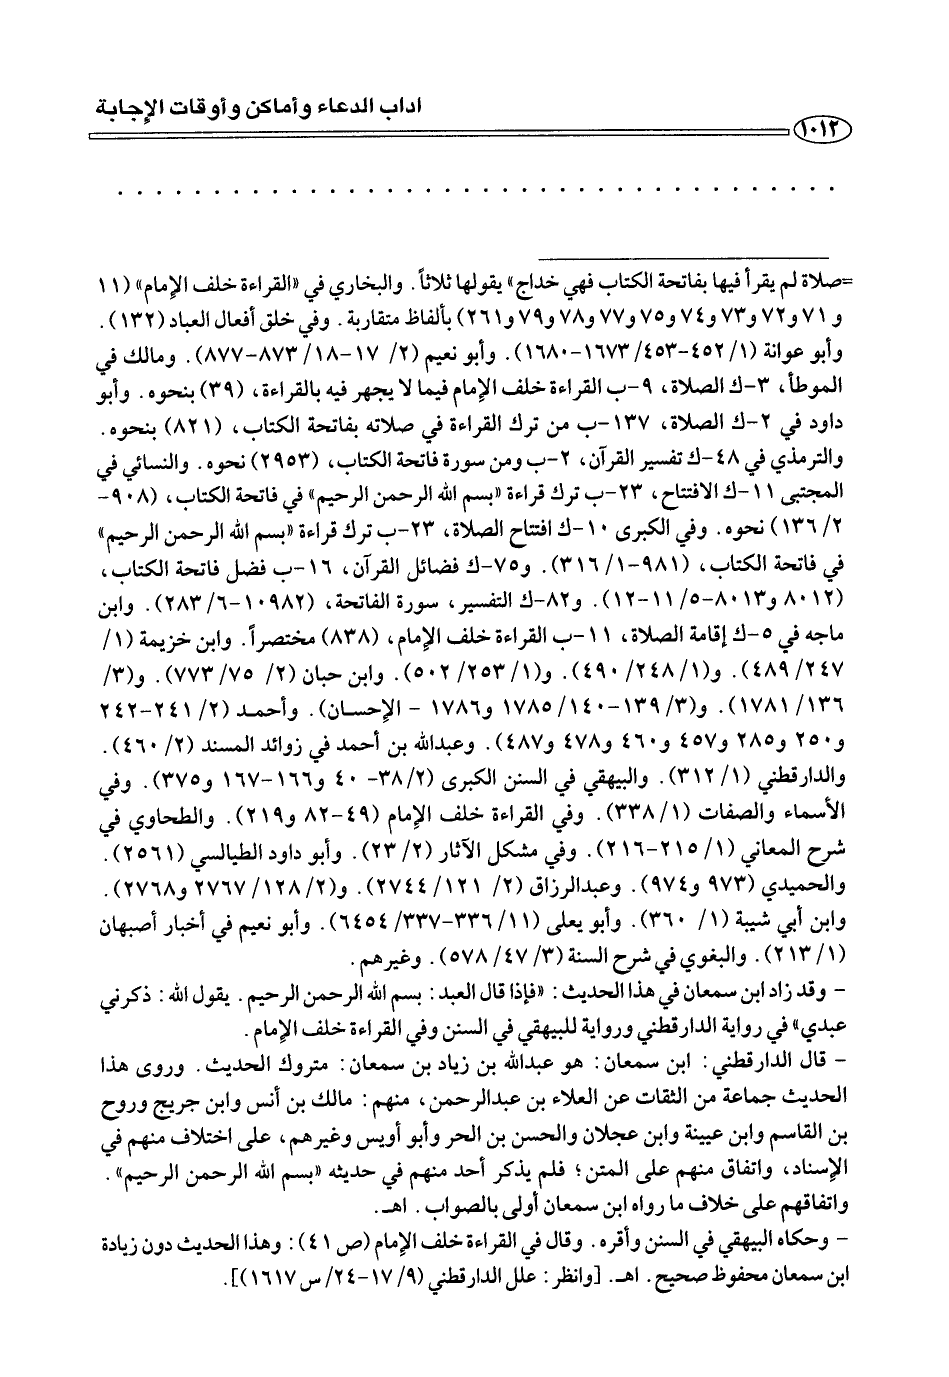 اداب الدعاء وأماكن وأوقات الإجابة
١٠١٢
. . . . . . . . . . . . . . . . . . . . . . . . . . . . . . . . . . . . .
=صلاة لم يقرأ فيها بفاتحة الكتاب فهي خداج» يقولها ثلاثاً. والبخاري في «القراءة خلف الإمام» (١١
و٧١ و٧٢ و٧٣ و٧٤ و٧٥ و٧٧ و٧٨ و٧٩ و٢٦١) بألفاظ متقاربة. وفي خلق أفعال العباد (١٣٢).
وأبو عوانة (١/ ٤٥٢-٤٥٣/ ١٦٧٣-١٦٨٠). وأبو نعيم (٢/ ١٧-١٨/ ٨٧٣-٨٧٧). ومالك في
الموطأ، ٣-ك الصلاة، ٩-ب القراءة خلف الإمام فيما لا يجهر فيه بالقراءة، (٣٩) بنحوه. وأبو
داود في ٢-ك الصلاة، ١٣٧-ب من ترك القراءة في صلاته بفاتحة الكتاب، (٨٢١) بنحوه.
والترمذي في ٤٨-ك تفسير القرآن، ٢-ب ومن سورة فاتحة الكتاب، (٢٩٥٣) نحوه. والنسائي في
المجتبى ١١-ك الافتتاح، ٢٣-ب ترك قراءة «بسم الله الرحمن الرحيم» في فاتحة الكتاب، (٩٠٨-
٢/ ١٣٦) نحوه. وفي الكبرى ١٠-ك افتتاح الصلاة، ٢٣-ب ترك قراءة «بسم الله الرحمن الرحيم»
في فاتحة الكتاب، (٩٨١-١/ ٣١٦). و٧٥-ك فضائل القرآن، ١٦-ب فضل فاتحة الكتاب،
(٨٠١٢ و٨٠١٣-٥/ ١١-١٢). و٨٢-ك التفسير، سورة الفاتحة، (١٠٩٨٢-٦/ ٢٨٣). وابن
ماجه في ٥-ك إقامة الصلاة، ١١-ب القراءة خلف الإمام، (٨٣٨) مختصراً. وابن خزيمة (١/
٢٤٧/ ٤٨٩). و(١/ ٢٤٨/ ٤٩٠). و(١/ ٢٥٣/ ٥٠٢). وابن حبان (٢/ ٧٥/ ٧٧٣). و(٣/
١٣٦/ ١٧٨١). و(٣/ ١٣٩-١٤٠/ ١٧٨٥ و١٧٨٦ - الإحسان). وأحمد (٢/ ٢٤١-٢٤٢
و٢٥٠ و٢٨٥ و٤٥٧ و٤٦٠ و٤٧٨ و٤٨٧). وعبدالله بن أحمد في زوائد المسند (٢/ ٤٦٠).
والدارقطني (١/ ٣١٢). والبيهقي في السنن الكبرى (٢/ ٣٨-٤٠ و١٦٦-١٦٧ و٣٧٥). وفي
الأسماء والصفات (١/ ٣٣٨). وفي القراءة خلف الإمام (٤٩-٨٢ و٢١٩). والطحاوي في
شرح المعاني (١/ ٢١٥-٢١٦). وفي مشكل الآثار (٢/ ٢٣). وأبو داود الطيالسي (٢٥٦١).
والحميدي (٩٧٣ و٩٧٤). وعبدالرزاق (٢/ ١٢١/ ٢٧٤٤). و(٢/ ١٢٨/ ٢٧٦٧ و٢٧٦٨).
وابن أبي شيبة (١/ ٣٦٠). وأبو يعلى (١١/ ٣٣٦-٣٣٧/ ٦٤٥٤). وأبو نعيم في أخبار أصبهان
(١/ ٢١٣). والبغوي في شرح السنة (٣/ ٤٧/ ٥٧٨). وغيرهم.
- وقد زاد ابن سمعان في هذا الحديث: «فإذا قال العبد: بسم الله الرحمن الرحيم. يقول الله: ذكرني
عبدي» في رواية الدارقطني ورواية للبيهقي في السنن وفي القراءة خلف الإمام.
- قال الدارقطني: ابن سمعان: هو عبدالله بن زياد بن سمعان: متروك الحديث. وروى هذا
الحديث جماعة من الثقات عن العلاء بن عبدالرحمن، منهم: مالك بن أنس وابن جريج وروح
بن القاسم وابن عيينة وابن عجلان والحسن بن الحر وأبو أويس وغيرهم، على اختلاف منهم في
الإسناد، واتفاق منهم على المتن؛ فلم يذكر أحد منهم في حديثه «بسم الله الرحمن الرحيم».
واتفاقهم على خلاف ما رواه ابن سمعان أولى بالصواب. اهـ.
- وحكاه البيهقي في السنن وأقره. وقال في القراءة خلف الإمام (ص ٤١): وهذا الحديث دون زيادة
ابن سمعان محفوظ صحيح. اهـ. [وانظر: علل الدارقطني (٩/ ١٧-٢٤/ س ١٦١٧)].